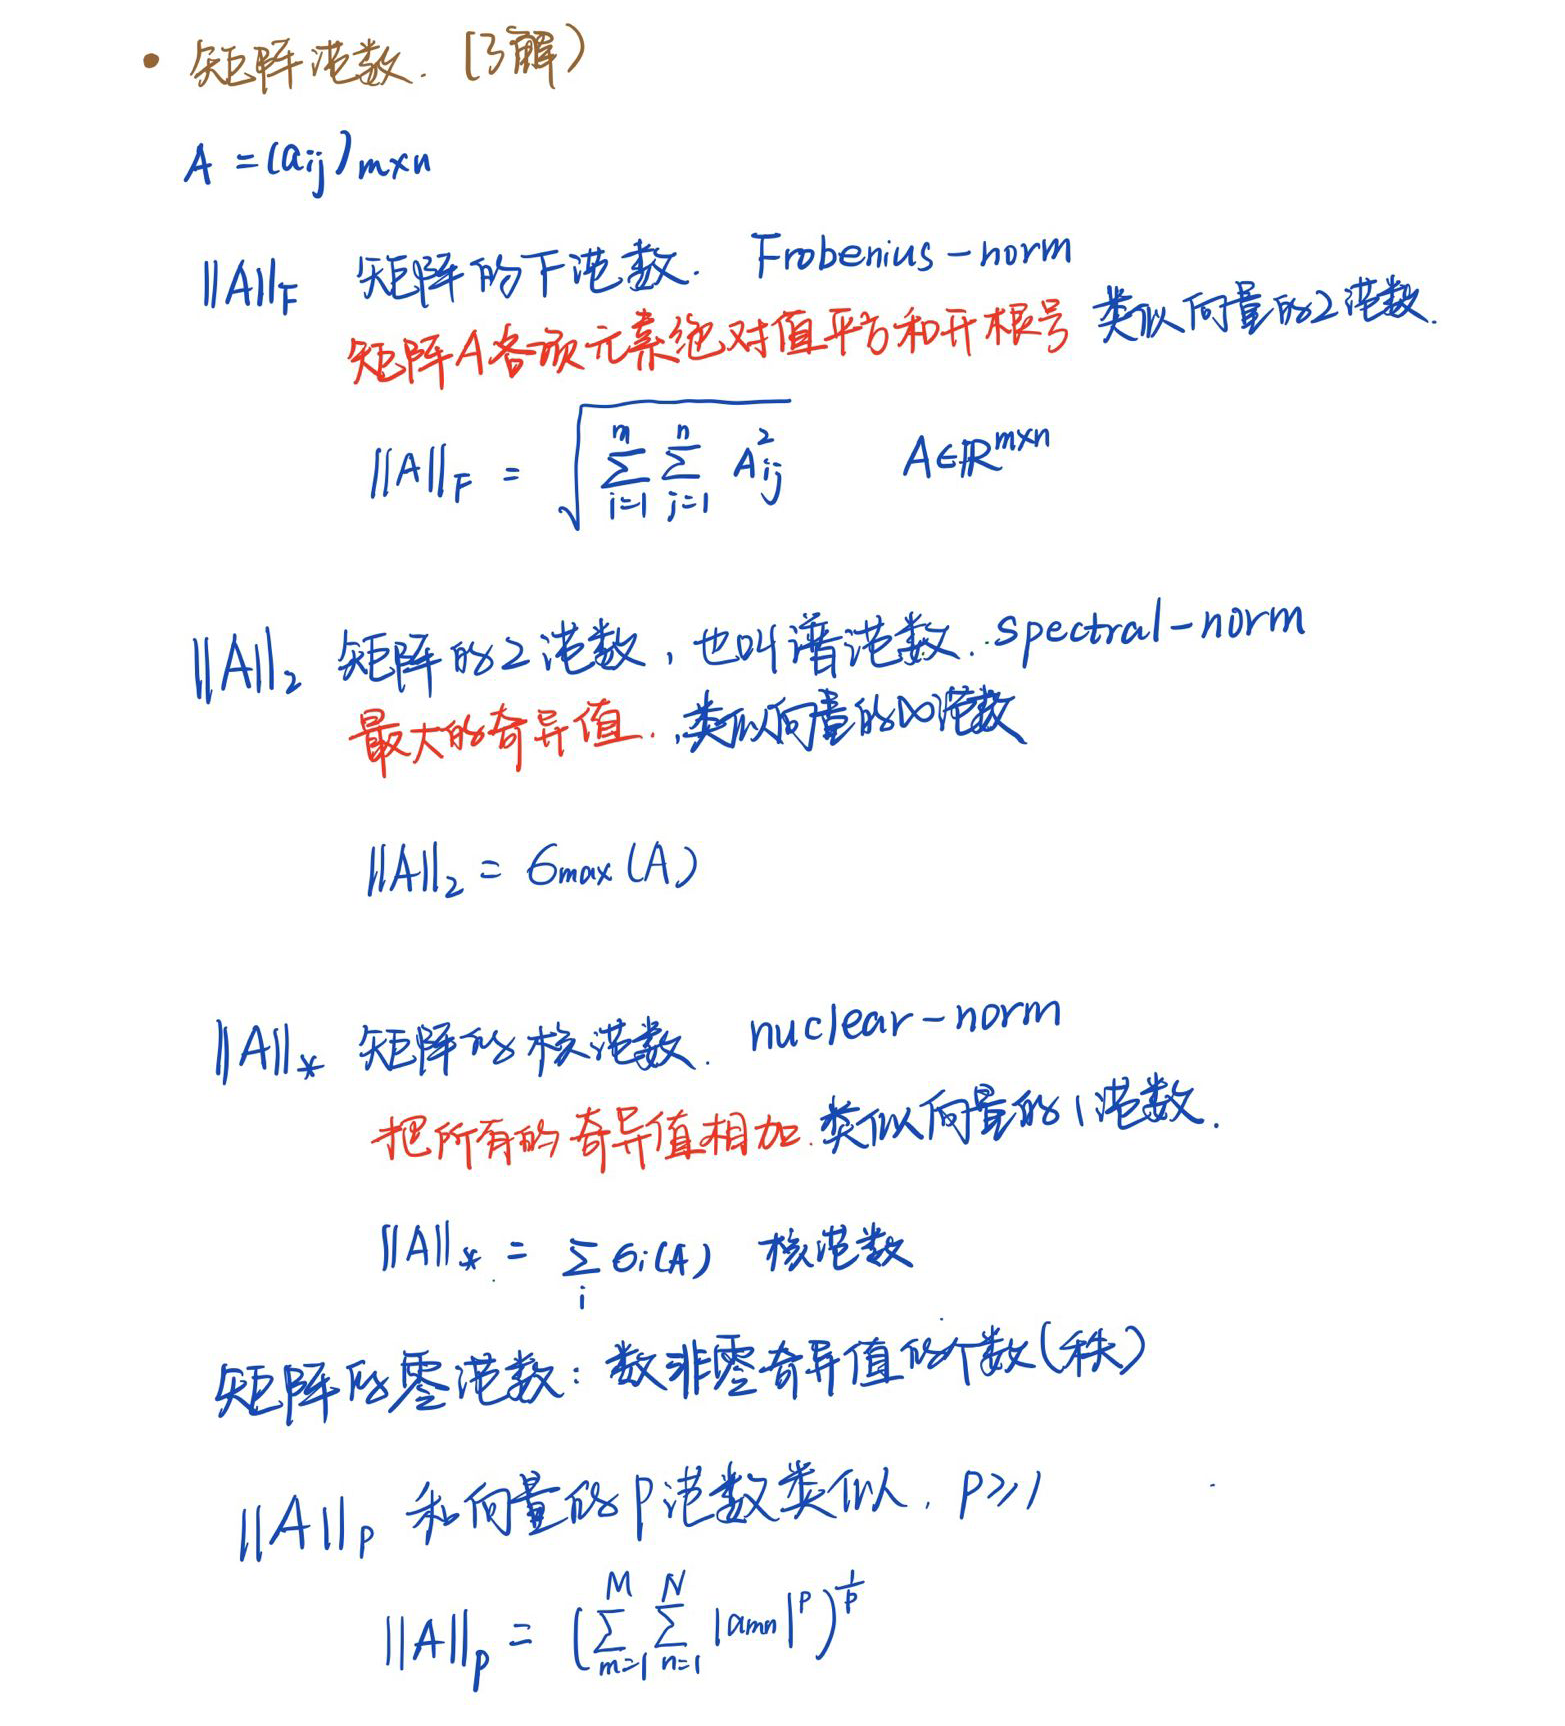 • 矩阵范数. (了解)
A = (aij)m×n
||A||F 矩阵的F范数. Frobenius-norm
矩阵A各项元素绝对值平方和开根号 类似向量的2范数.
||A||F = √(∑_{i=1}^{m} ∑_{j=1}^{n} A_{ij}^2) A∈ℝ^{m×n}
||A||₂ 矩阵的2范数, 也叫谱范数. spectral-norm
最大的奇异值. 类似向量的∞范数
||A||₂ = σmax(A)
||A||* 矩阵的核范数. nuclear-norm
把所有的奇异值相加. 类似向量的1范数.
||A||* = ∑_i σi(A) 核范数
矩阵的零范数: 数非零奇异值的个数(秩)
||A||p 和向量的p范数类似, p≥1
||A||p = (∑_{m=1}^{M} ∑_{n=1}^{N} |amn|^p)^{1/p}